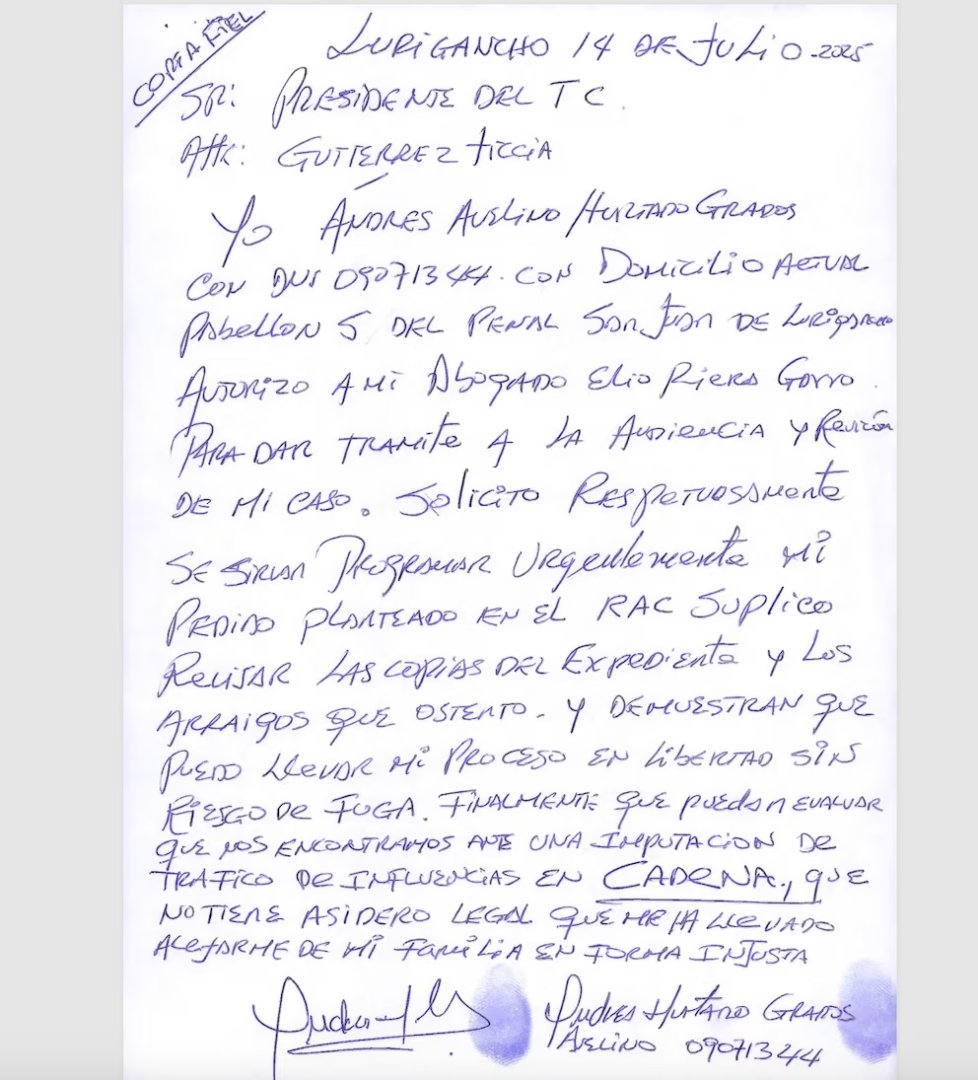 COPIA FIEL
LURIGANCHO 14 DE JULIO-2025
SR: PRESIDENTE DEL TC.
Att: GUTIERREZ TICCIA
YO ANDRES AVELINO HURTADO GRADOS
CON DNI 09071344. CON DOMICILIO ACTUAL
PABELLON 5 DEL PENAL SAN JUAN DE LURIGANCHO
AUTORIZO A MI ABOGADO ELIO RIERA GARRO.
PARA DAR TRAMITE A LA AUDIENCIA Y REVISIÓN
DE MI CASO. SOLICITO RESPETUOSAMENTE
SE SIRVAN PROGRAMAR URGENTEMENTE MI
PEDIDO PLANTEADO EN EL RAC SUPLICO
REVISAR LAS COPIAS DEL EXPEDIENTE Y LOS
ARRAIGOS QUE OSTENTO. Y DEMUESTRAN QUE
PUEDO LLEVAR MI PROCESO EN LIBERTAD SIN
RIESGO DE FUGA. FINALMENTE QUE PUEDAN EVALUAR
QUE NOS ENCONTRAMOS ANTE UNA IMPUTACION DE
TRAFICO DE INFLUENCIAS EN CADENA., QUE
NO TIENE ASIDERO LEGAL QUE ME HA LLEVADO
ALEJARME DE MI FAMILIA EN FORMA INJUSTA
ANDRES HURTADO GRADOS
AVELINO 09071344